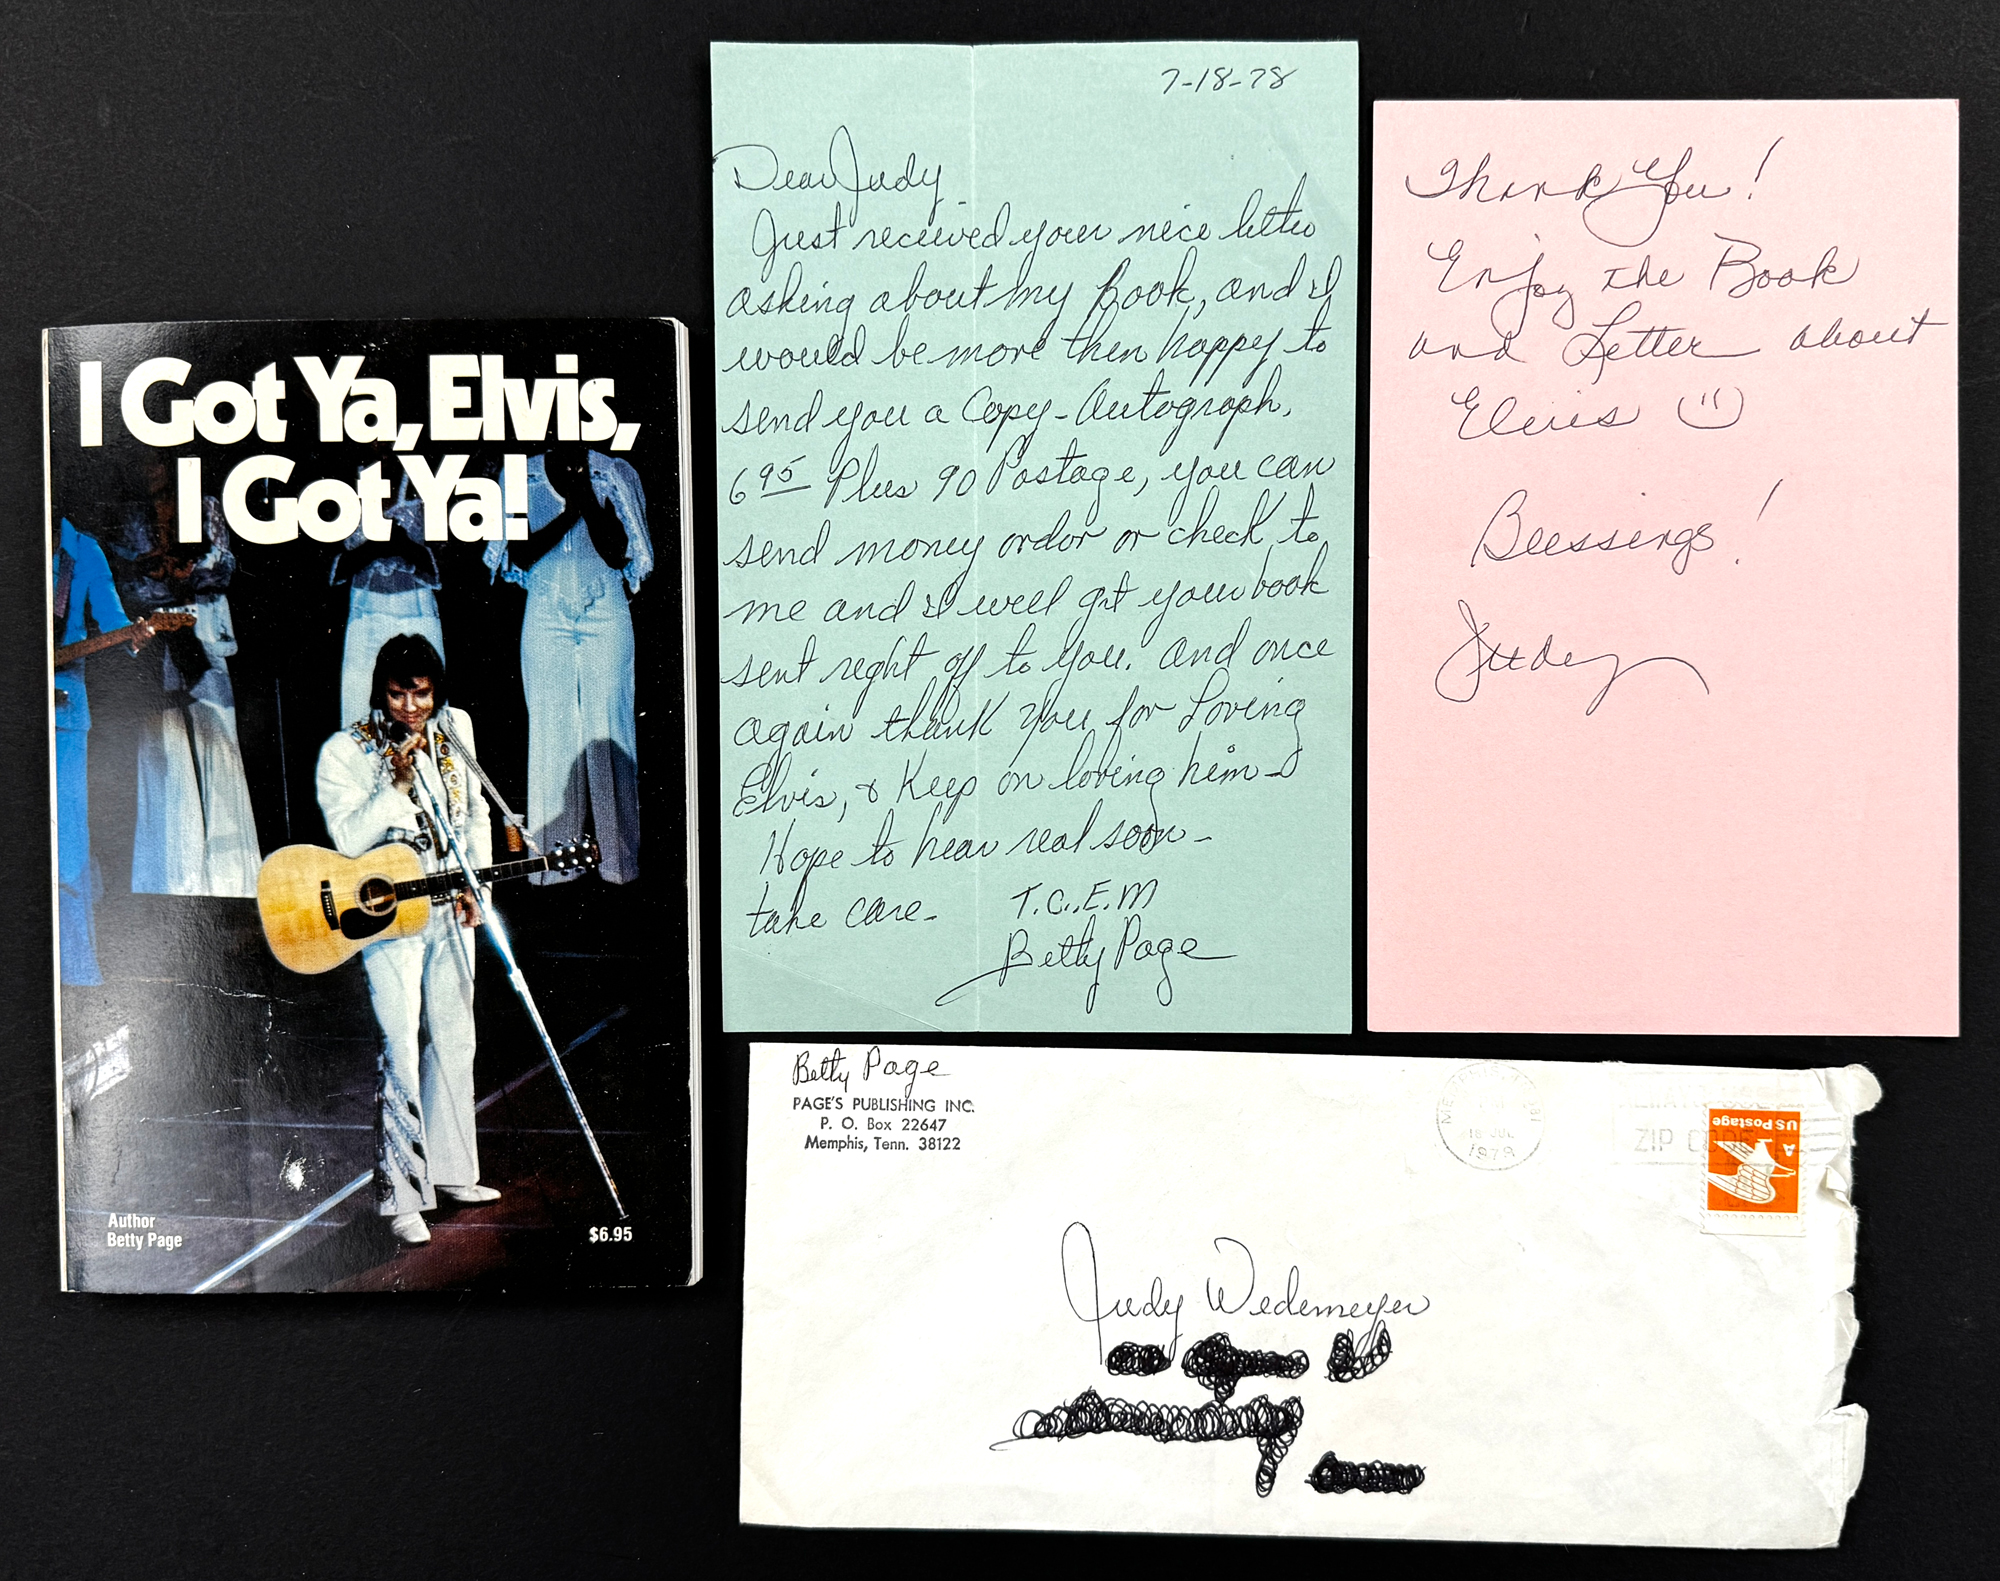 I Got Ya, Elvis,
I Got Ya!
Author
Betty Page
$6.95
7-18-78
Dear Judy
Just received your nice letter
asking about my book, and I
would be more then happy to
send you a Copy-Autograph,
6 95 Plus 90 Postage, you can
send money order or check to
me and I will get your book
sent right off to you. and once
again thank you for Loving
Elvis, & Keep on loving him-
Hope to hear real soon-
take care- T.C.,E.M
Betty Page
Thank You!
Enjoy the Book
and Letter about
Elvis
Blessings!
Judy
Betty Page
PAGE'S PUBLISHING INC.
P. O. Box 22647
Memphis, Tenn. 38122
18 JUL
ZIP CODE
US Postage
A
Judy Wedemeyer